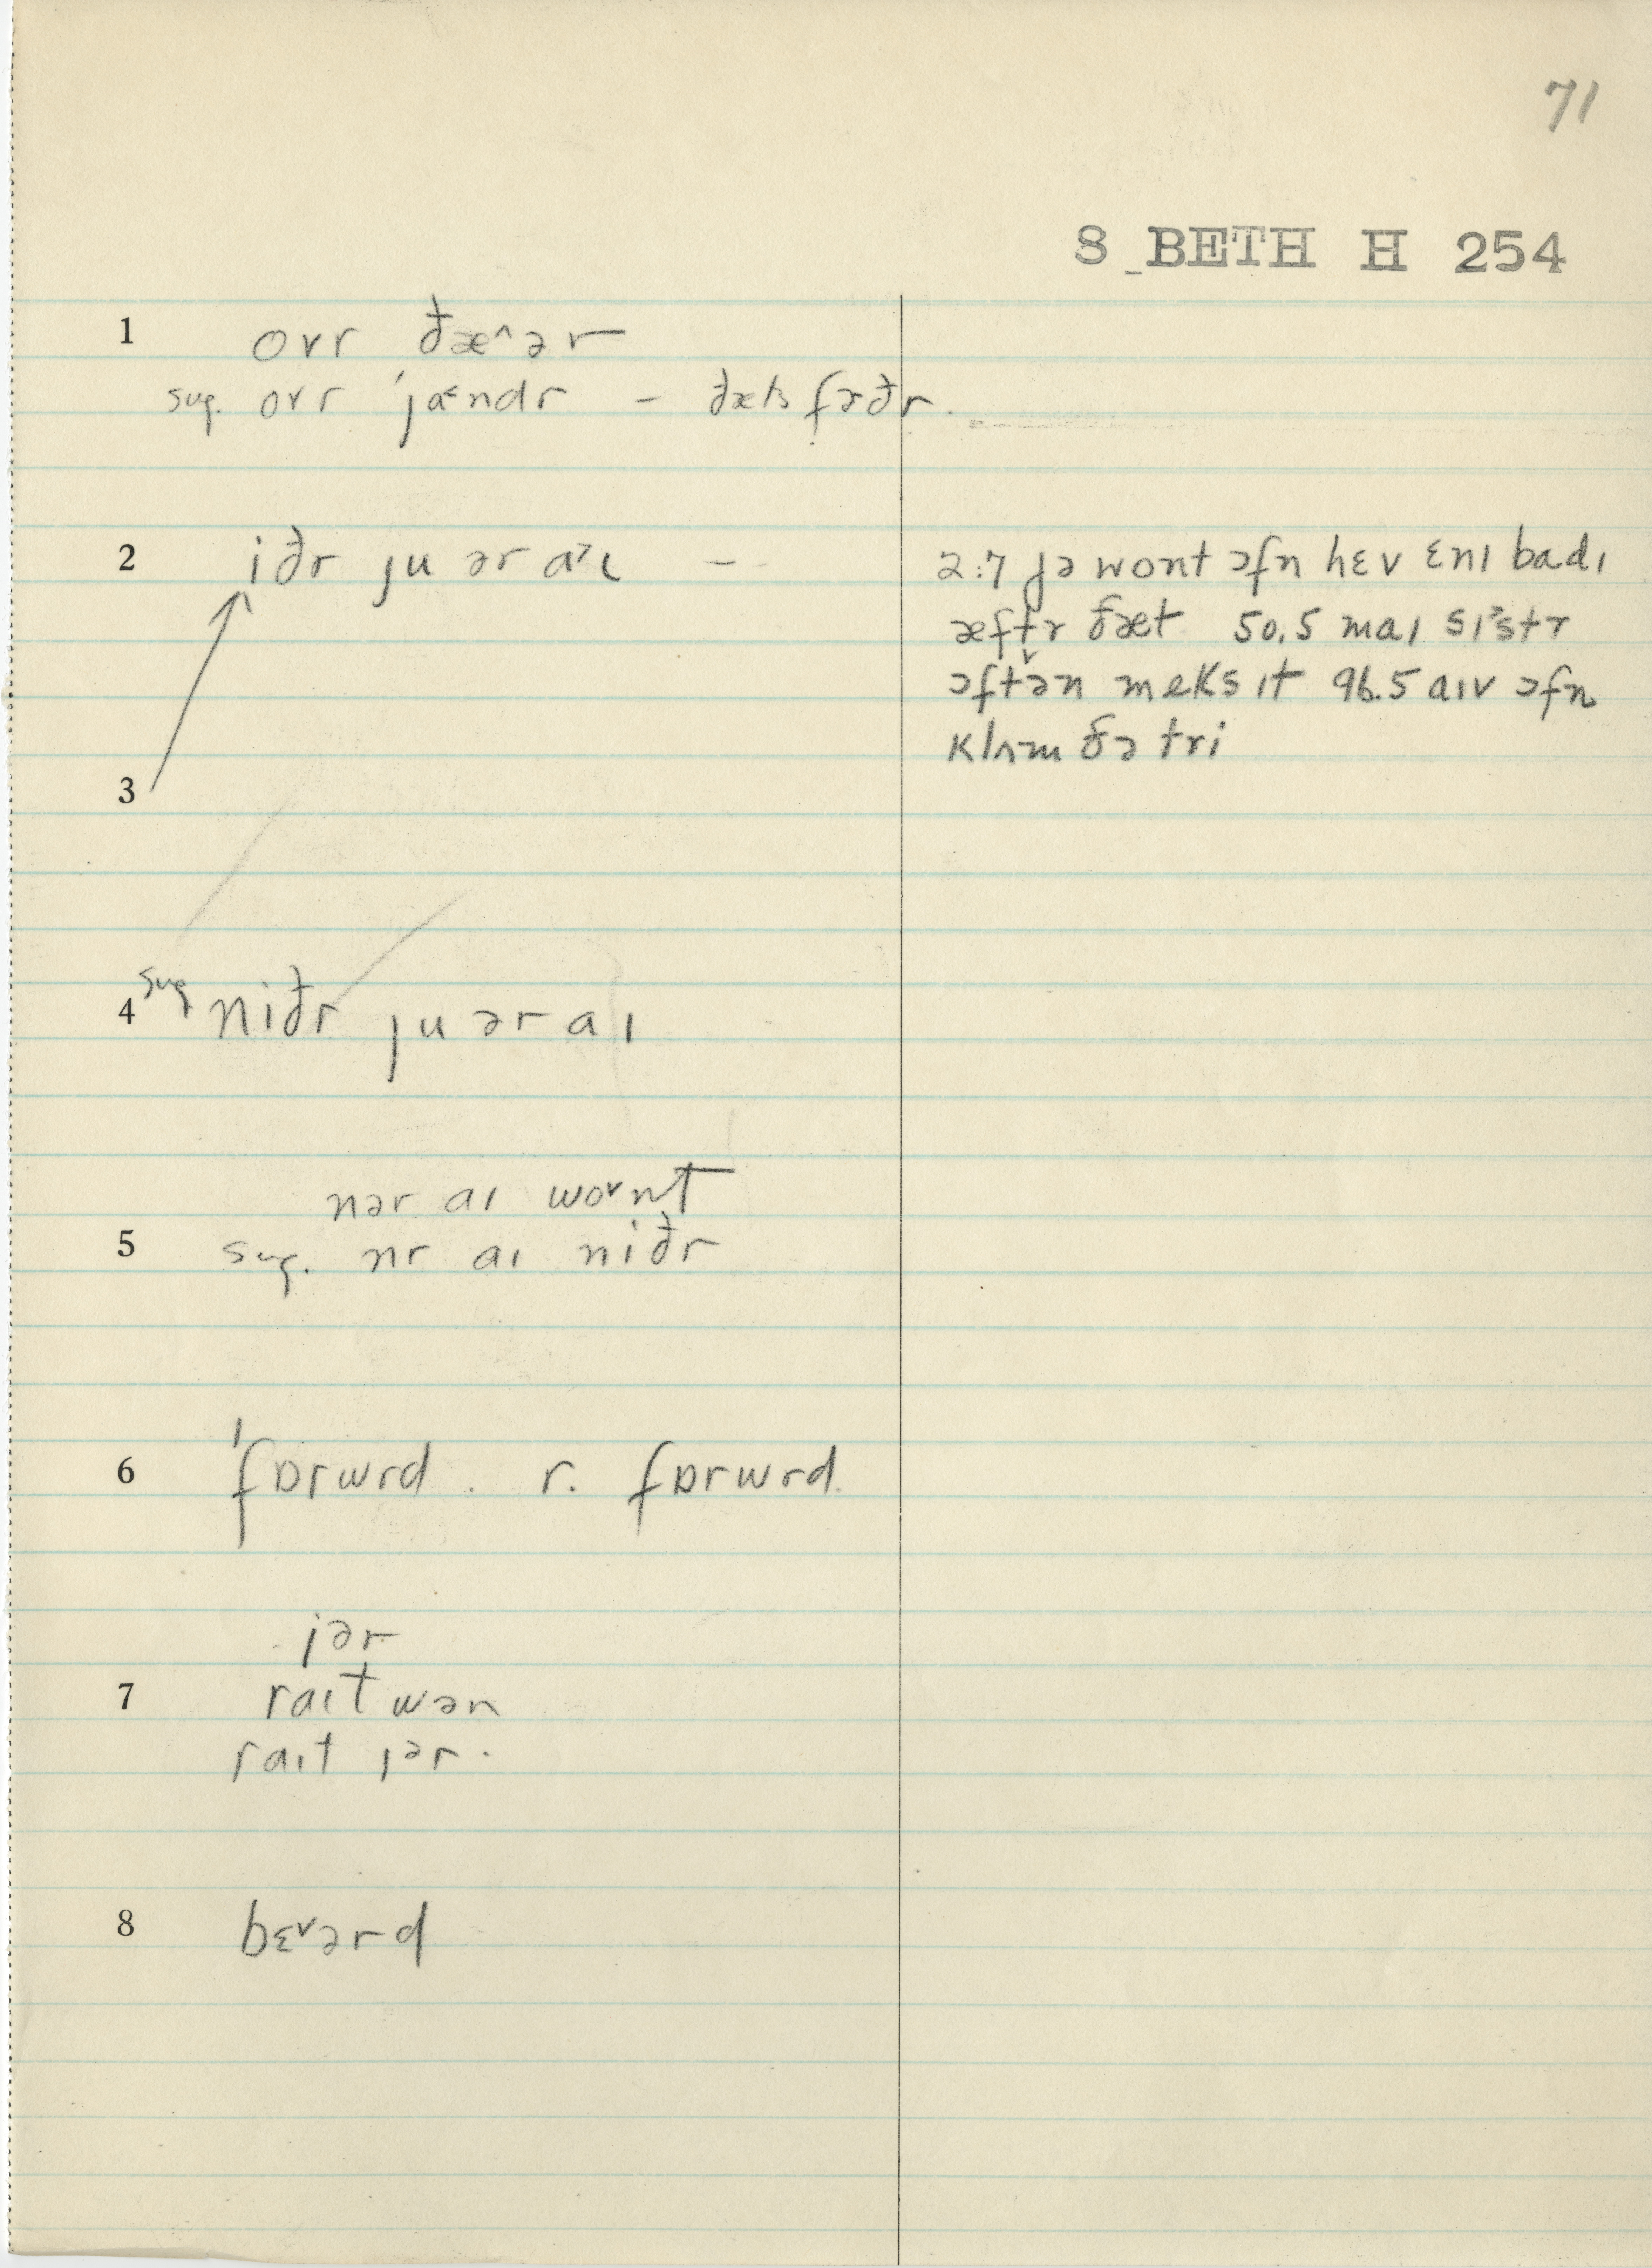 71
S_BETH H 254
1 ovr ðæ^ər
sug. ovr 'jæ˂ndr – ðæts fəðr.
2 iðr ju ər a˃ɩ –
2:7 jə wont ɔfn hɛv ɛnɪ badɪ
æftr ðæt 50.5 maɪ sɪ˃str
ɔftˇən meks ɪt 96.5 aɪv ɔfn
klʌɪm ðə tri
3
4 sug niðr ju ər aɪ
nər aɪ wovnt
5 sug. nr aɪ niðr
6 'fɒrwrd. r. fɒrwrd.
jər
7 raɪt wən
raɪt jər.
8 bɛˇərd